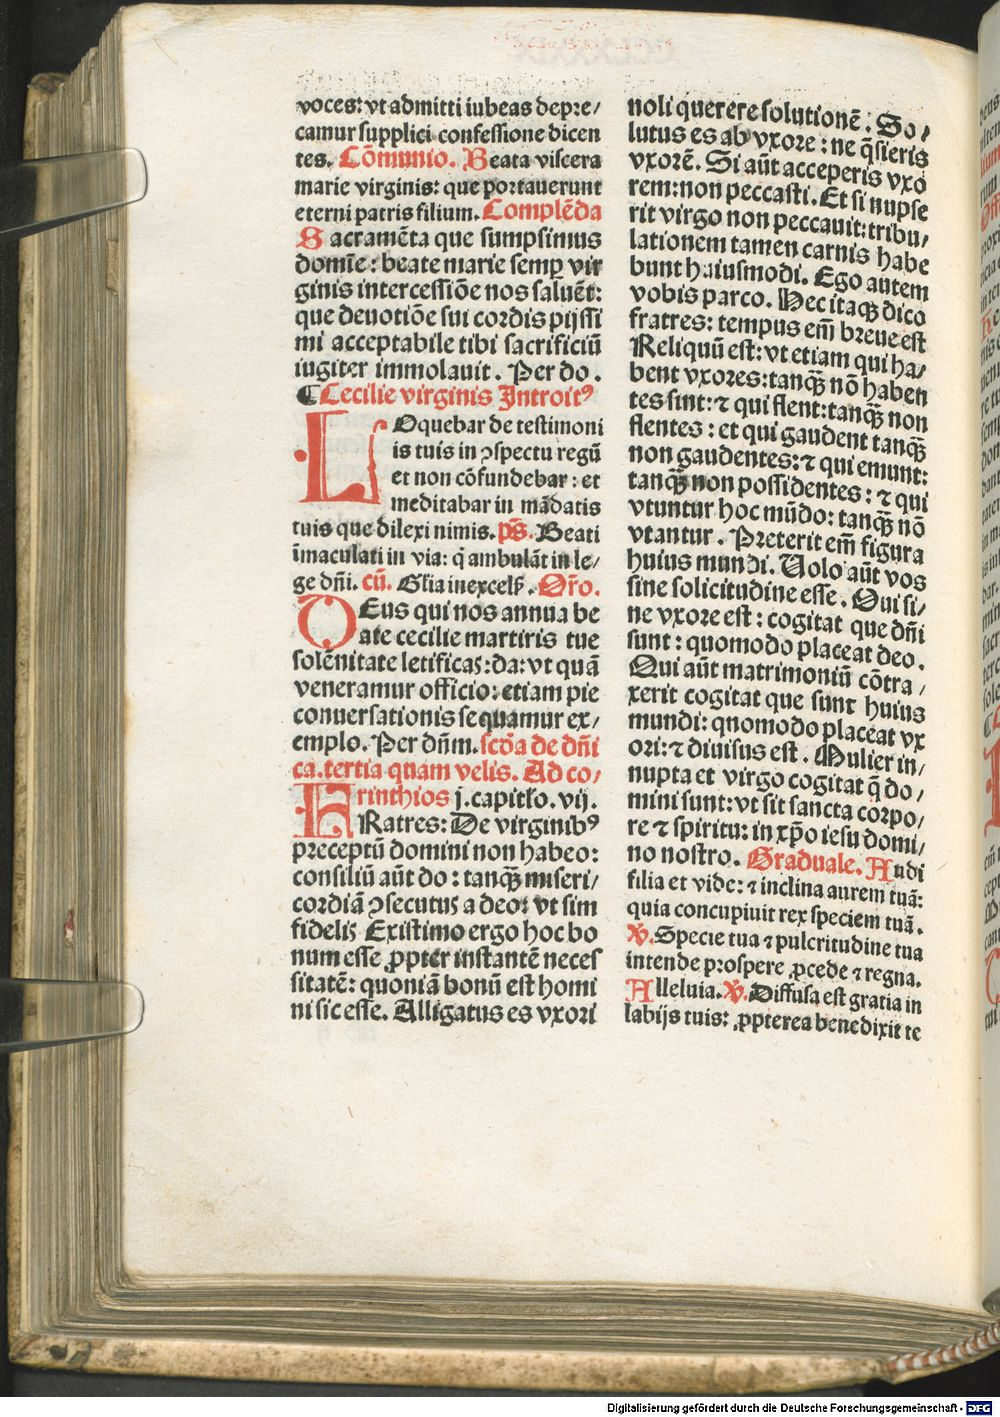 voces: vt admitti iubeas depre/
camur supplici confessione dicen
tes. Cōmunio. Beata viscera
marie virginis: que portauerunt
eterni patris filium. Complēda
Sacramēta que sumpsimus
domīe: beate marie semꝑ vir
ginis intercessiōe nos saluēt:
que deuotiōe sui cordis pijssi
mi acceptabile tibi sacrificiū
iugiter immolauit. Per do.
¶ Cecilie virginis Introitꝰ
LOquebar de testimoni
is tuis in ꝯspectu regū
et non cōfundebar: et
meditabar in mādatis
tuis que dilexi nimis. p̄s. Beati
īmaculati in via: q̄ ambulāt in le/
ge dn̄i. cū. Glia in excels̉. Or̄o.
DEus qui nos annua be
ate cecilie martiris tue
solēnitate letificas: da: vt quā
veneramur officio: etiam pie
conuersationis sequamur ex/
emplo. Per dn̄m. scōa de dn̄i
ca. tertia quam velis. Ad co/
rinthios j. capitło. vij.
FRatres: De virginibꝰ
preceptū domini non habeo:
consiliū aūt do: tanqȝ̄ miseri/
cordiā ꝯsecutus a deo: vt sim
fidelis Existimo ergo hoc bo
num esse ꝓpter instantē neces
sitatē: quoniā bonū est homi
ni sic esse. Alligatus es vxori
noli querere solutionē: So/
lutus es ab vxore: ne q̄sieris
vxorē. Si aūt acceperis vxo
rem: non peccasti. Et si nupse
rit virgo non peccauit: tribu/
lationem tamen carnis habe
bunt huiusmodi. Ego autem
vobis parco. Hec itaqȝ dico
fratres: tempus em̄ breue est
Reliquū est: vt etiam qui ha/
bent vxores: tanqȝ̄ nō haben
tes sint: ⁊ qui flent: tanqȝ̄ non
flentes: et qui gaudent tanqȝ̄
non gaudentes: ⁊ qui emunt:
tanqȝ̄ non possidentes: ⁊ qui
vtuntur hoc mūdo: tanqȝ̄ nō
vtantur. Preterit em̄ figura
huius mundi. Uolo aūt vos
sine solicitudine esse. Qui si/
ne vxore est: cogitat que dn̄i
sunt: quomodo placeat deo.
Qui aūt matrimoniū cōtra/
xerit cogitat que sunt huius
mundi: qnomodo placeat vx
ori: ⁊ diuisus est. Mulier in/
nupta et virgo cogitat q̄ do/
mini sunt: vt sit sancta corpo/
re ⁊ spiritu: in xp̄o iesu domi/
no nostro. Graduale. Audi
filia et vide: ⁊ inclina aurem tuā:
quia concupiuit rex speciem tuā.
℣. Specie tua ⁊ pulcritudine tua
intende prospere ꝓcede ⁊ regna.
Alleluia. ℣. Diffusa est gratia in
labijs tuis: ꝓpterea benedixit te
Digitalisierung gefördert durch die Deutsche Forschungsgemeinschaft - DFG